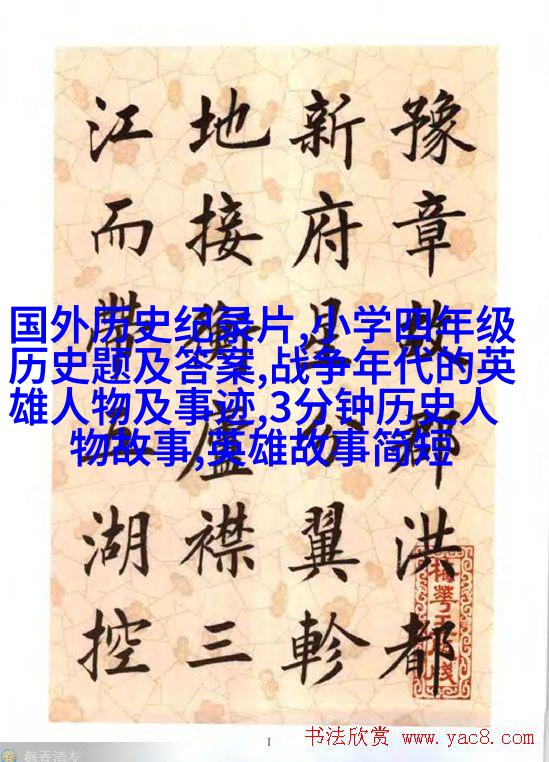 豫章故郡洪都
新府星分翼軫
地接衡廬襟三
江而帶五湖控
国外历史纪录片,小学四年级
历史题及答案,战争年代的英
雄人物及事迹,3分钟历史人
物故事,英雄故事简短
1
书法欣赏 www.yac8.com
梅香清友